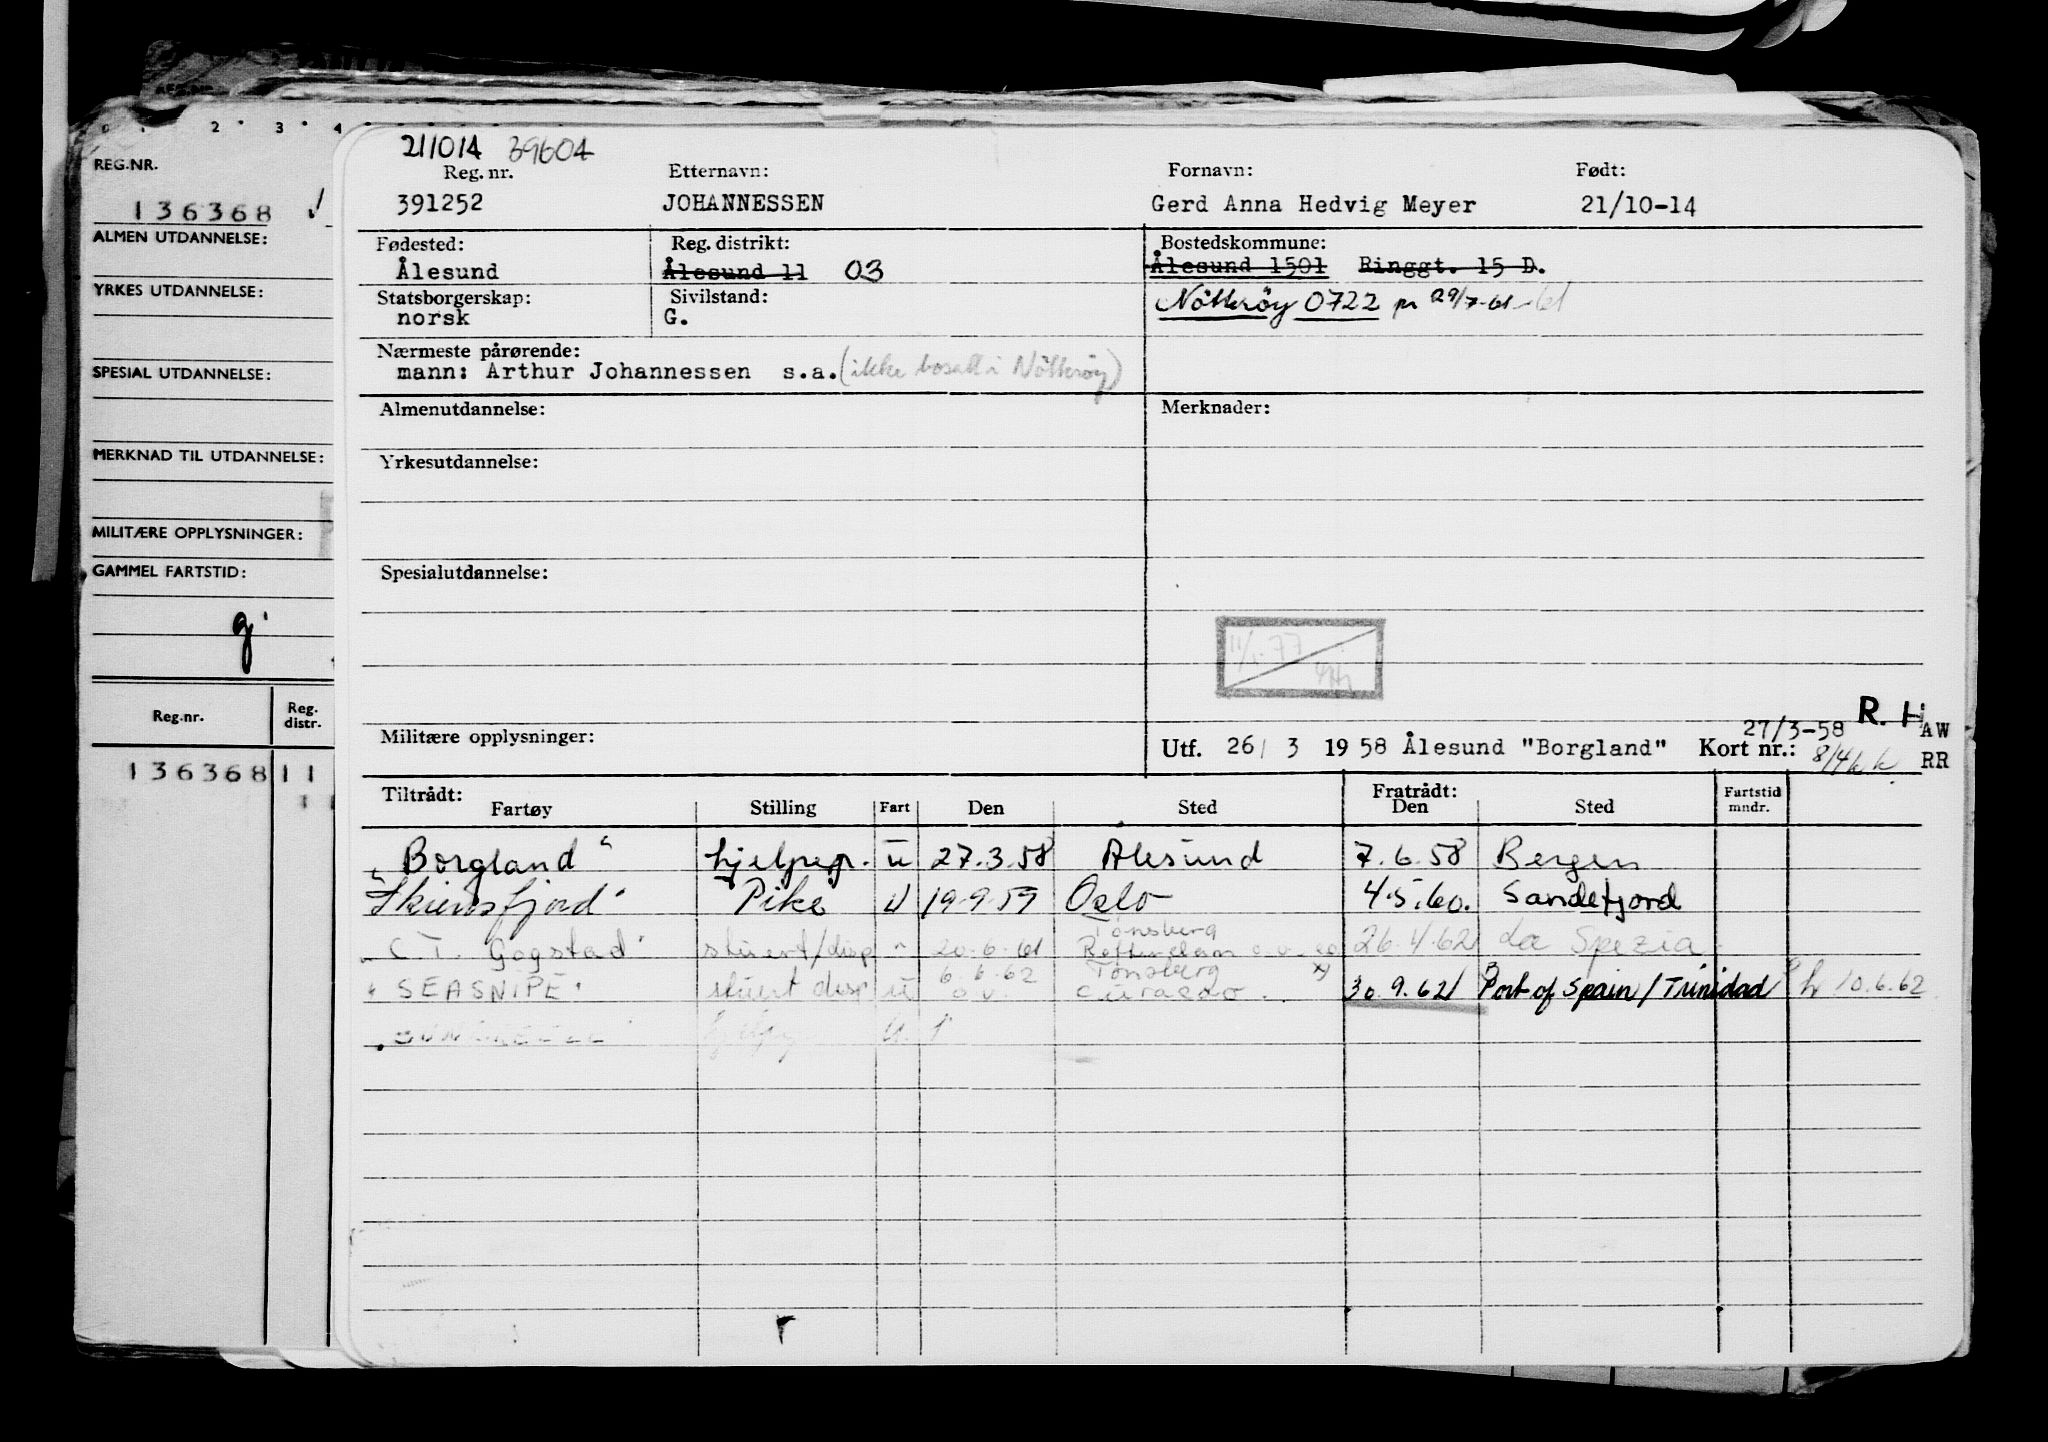 0 . 2 . 3 . 4
REG.NR.
136368
ALMEN UTDANNELSE:
YRKES UTDANNELSE:
SPESIAL UTDANNELSE:
MERKNAD TIL UTDANNELSE:
MILITÆRE OPPLYSNINGER:
GAMMEL FARTSTID:
g.
Reg.nr. Reg. distr.
136368 11
211014 39604
Reg. nr. Etternavn: Fornavn: Født:
391252 JOHANNESSEN Gerd Anna Hedvig Meyer 21/10-14
Fødested: Reg. distrikt: Bostedskommune:
Ålesund Ålesund 11 03 Ålesund 1501 Ringgt. 15 D.
Statsborgerskap: Sivilstand: Nötteröy 0722 pr 29/7-61 -61
norsk G.
Nærmeste pårørende:
mann: Arthur Johannessen s.a. (ikke bosatt i Nötteröy)
Almenutdannelse: Merknader:
Yrkesutdannelse:
Spesialutdannelse:
77
R. H
27/3-58 AW
Militære opplysninger: Utf. 26/ 3 1958 Ålesund "Borgland" Kort nr.: RR
Tiltrådt: Fratrådt: Fartstid
Fartøy Stilling Fart Den Sted Den Sted mndr.
"Borgland" hjelpegr. u 27.3.58 Ålesund 7.6.58 Bergen
"Skiensfjord" Pike U 19.9.59 Oslo 4.5.60. Sandefjord
Tønsberg
"C.T. Gogstad" stuert/disp " 20.6.61 Rotterdam 26.4.62 La Spezia
6.6.62 Tønsberg
"SEASNIPE" stuert disp u o.v. Curacao 30.9.62 Port of Spain/Trinidad hr 10.6.62